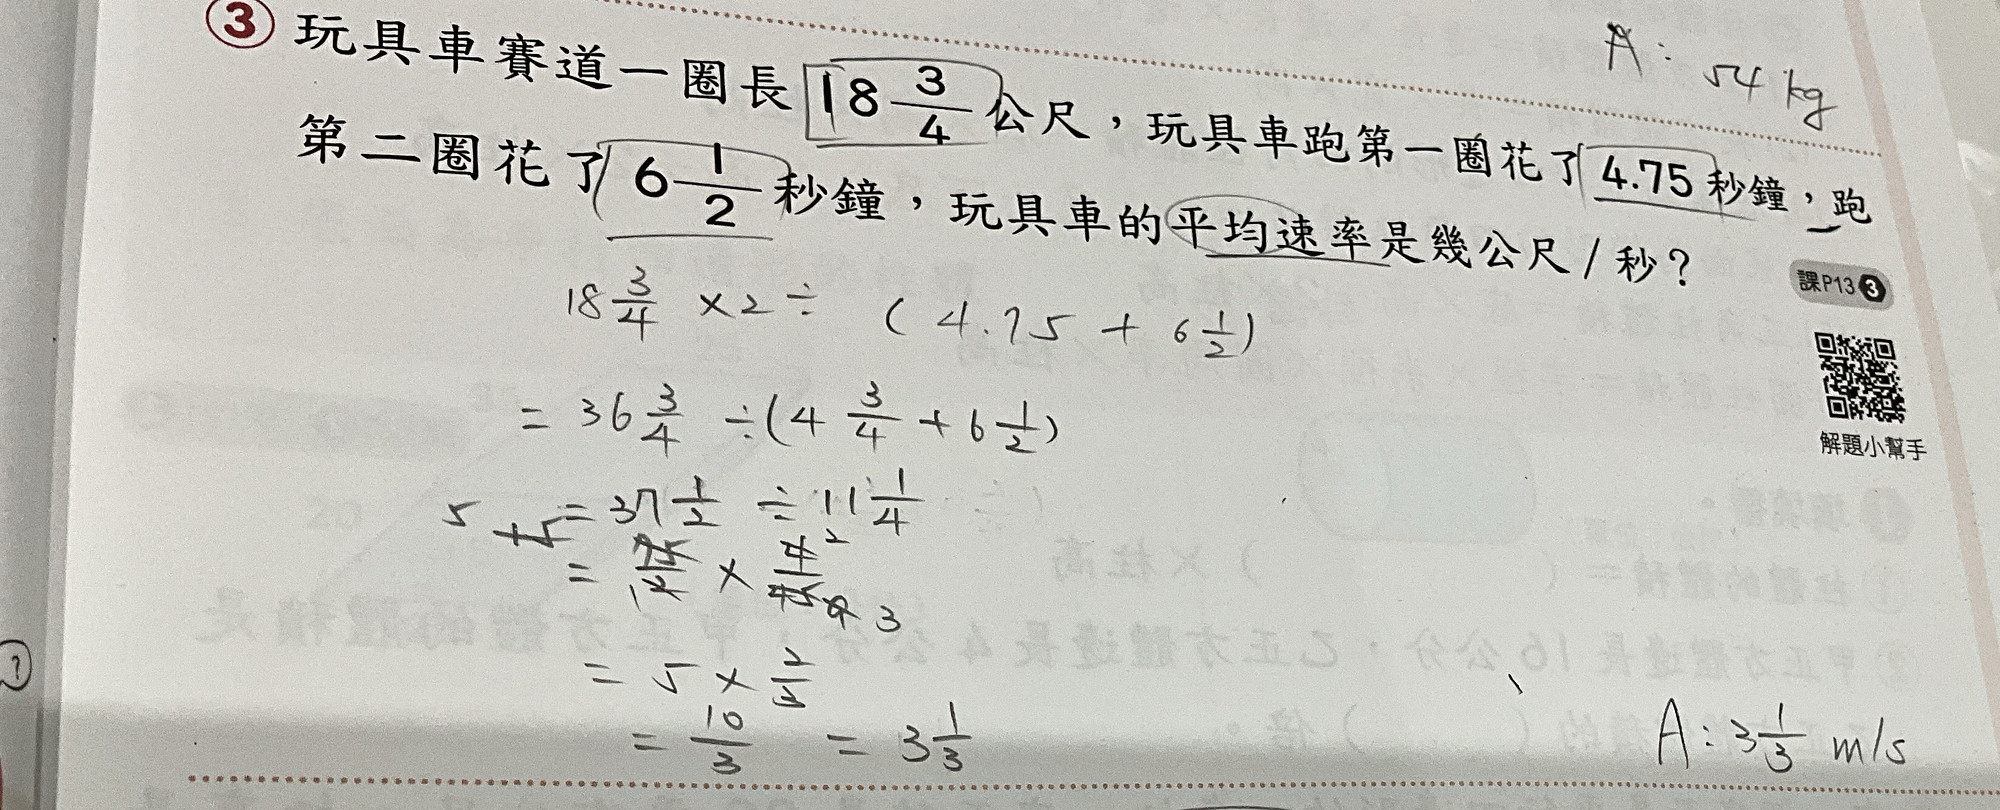 A: 54 kg
③ 玩具車賽道一圈長 18 3/4 公尺，玩具車跑第一圈花了 4.75 秒鐘，跑
第二圈花了 6 1/2 秒鐘，玩具車的平均速率是幾公尺/秒？
課P13 ❸
解題小幫手
18 3/4 ×2÷ (4.75 + 6 1/2)
= 36 3/4 ÷(4 3/4 + 6 1/2)
= 37 1/2 ÷ 11 1/4
= 75/2 × 4/45
= 5 × 2/3
= 10/3 = 3 1/3
A: 3 1/3 m/s